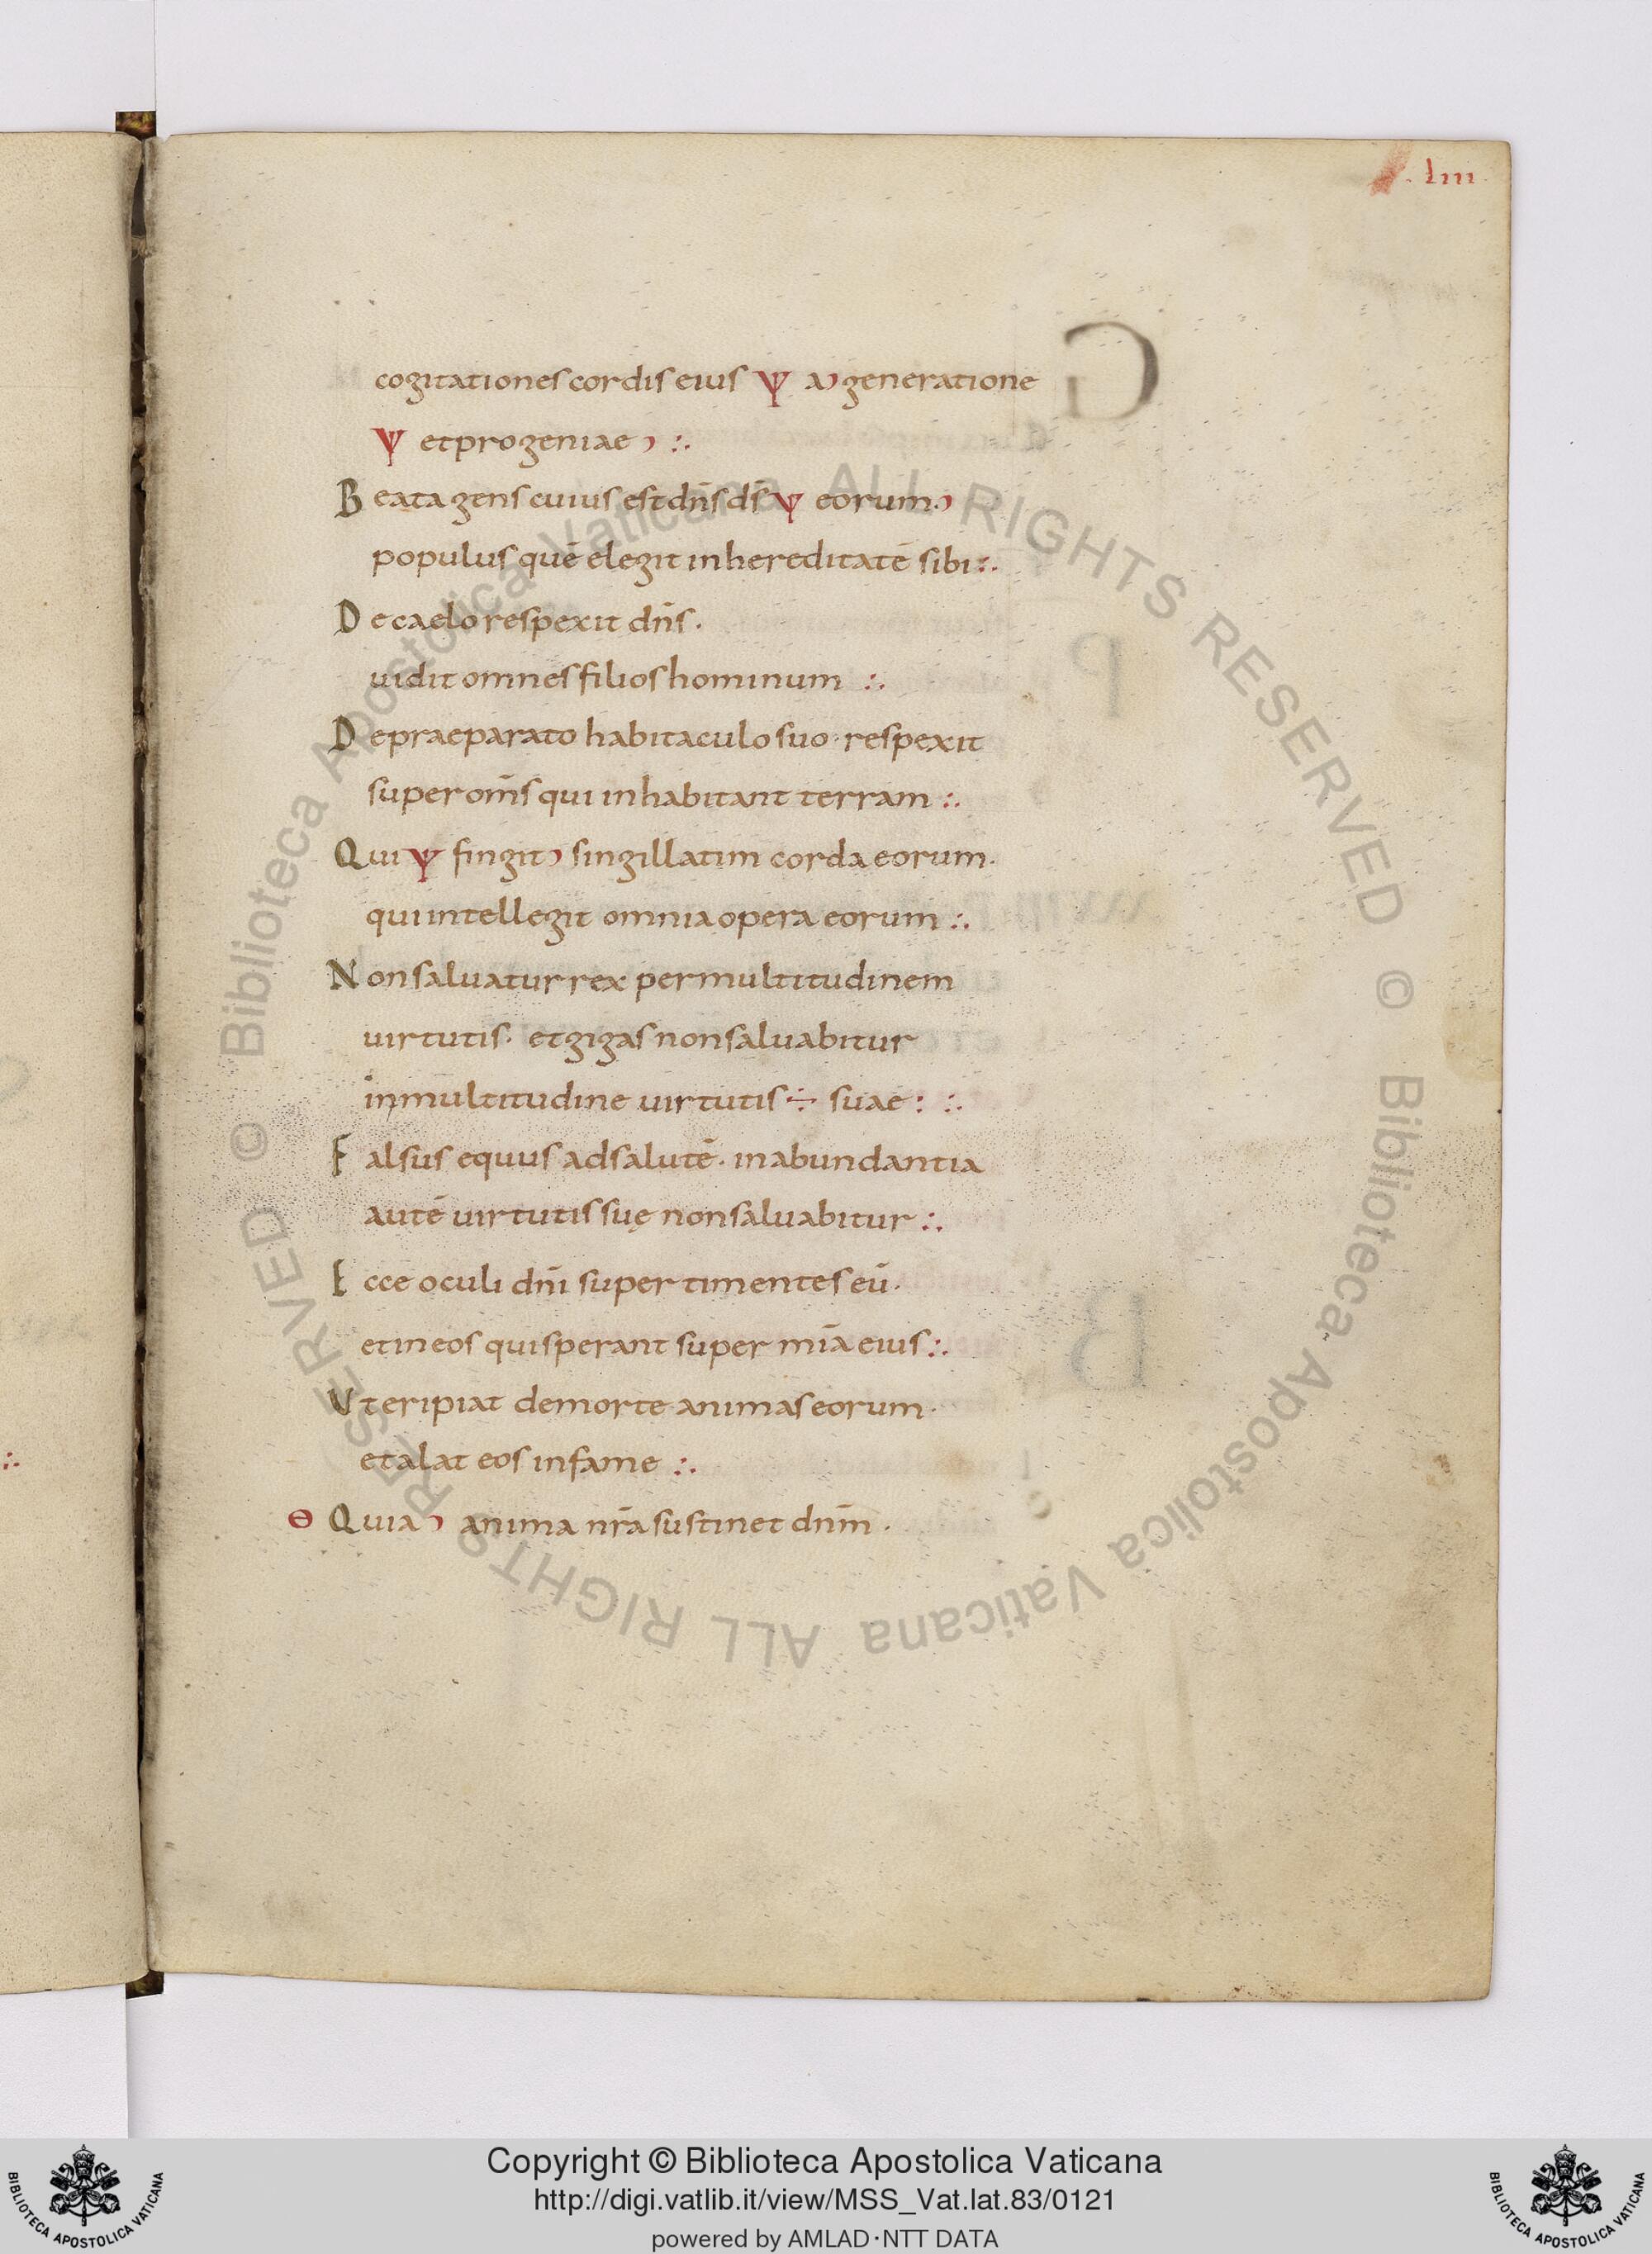 . lııı .
cogitationes cordis eius Ψ a) generatione
Ψ et progeniae ) :.
Beata gens cuius est dn̄s ds̄ Ψ eorum.)
populus quē elegit in hereditatē sibi :.
De caelo respexit dn̄s.
uidit omnes filios hominum :.
De praeparato habitaculo suo. respexit
super om̄s qui inhabitant terram :.
Qui Ψ fingit) singillatim corda eorum.
qui intellegit omnia opera eorum :.
Non saluatur rex per multitudinem
uirtutis. et gigas non saluabitur
in multitudine uirtutis ÷ suae : :.
Falsus equus ad salutē. in abundantia
autē uirtutis suę non saluabitur :.
Ecce oculi dn̄i super timentes eū.
et in eos qui sperant super mīa eius :.
Ut eripiat de morte animas eorum.
et alat eos in fame :.
Θ Quia) anima nr̄a sustinet dn̄m.
© Biblioteca Apostolica Vaticana ALL RIGHTS RESERVED © Biblioteca Apostolica Vaticana ALL RIGHTS RESERVED
Copyright © Biblioteca Apostolica Vaticana
http://digi.vatlib.it/view/MSS_Vat.lat.83/0121
powered by AMLAD·NTT DATA
BIBLIOTECA APOSTOLICA VATICANA
BIBLIOTECA APOSTOLICA VATICANA